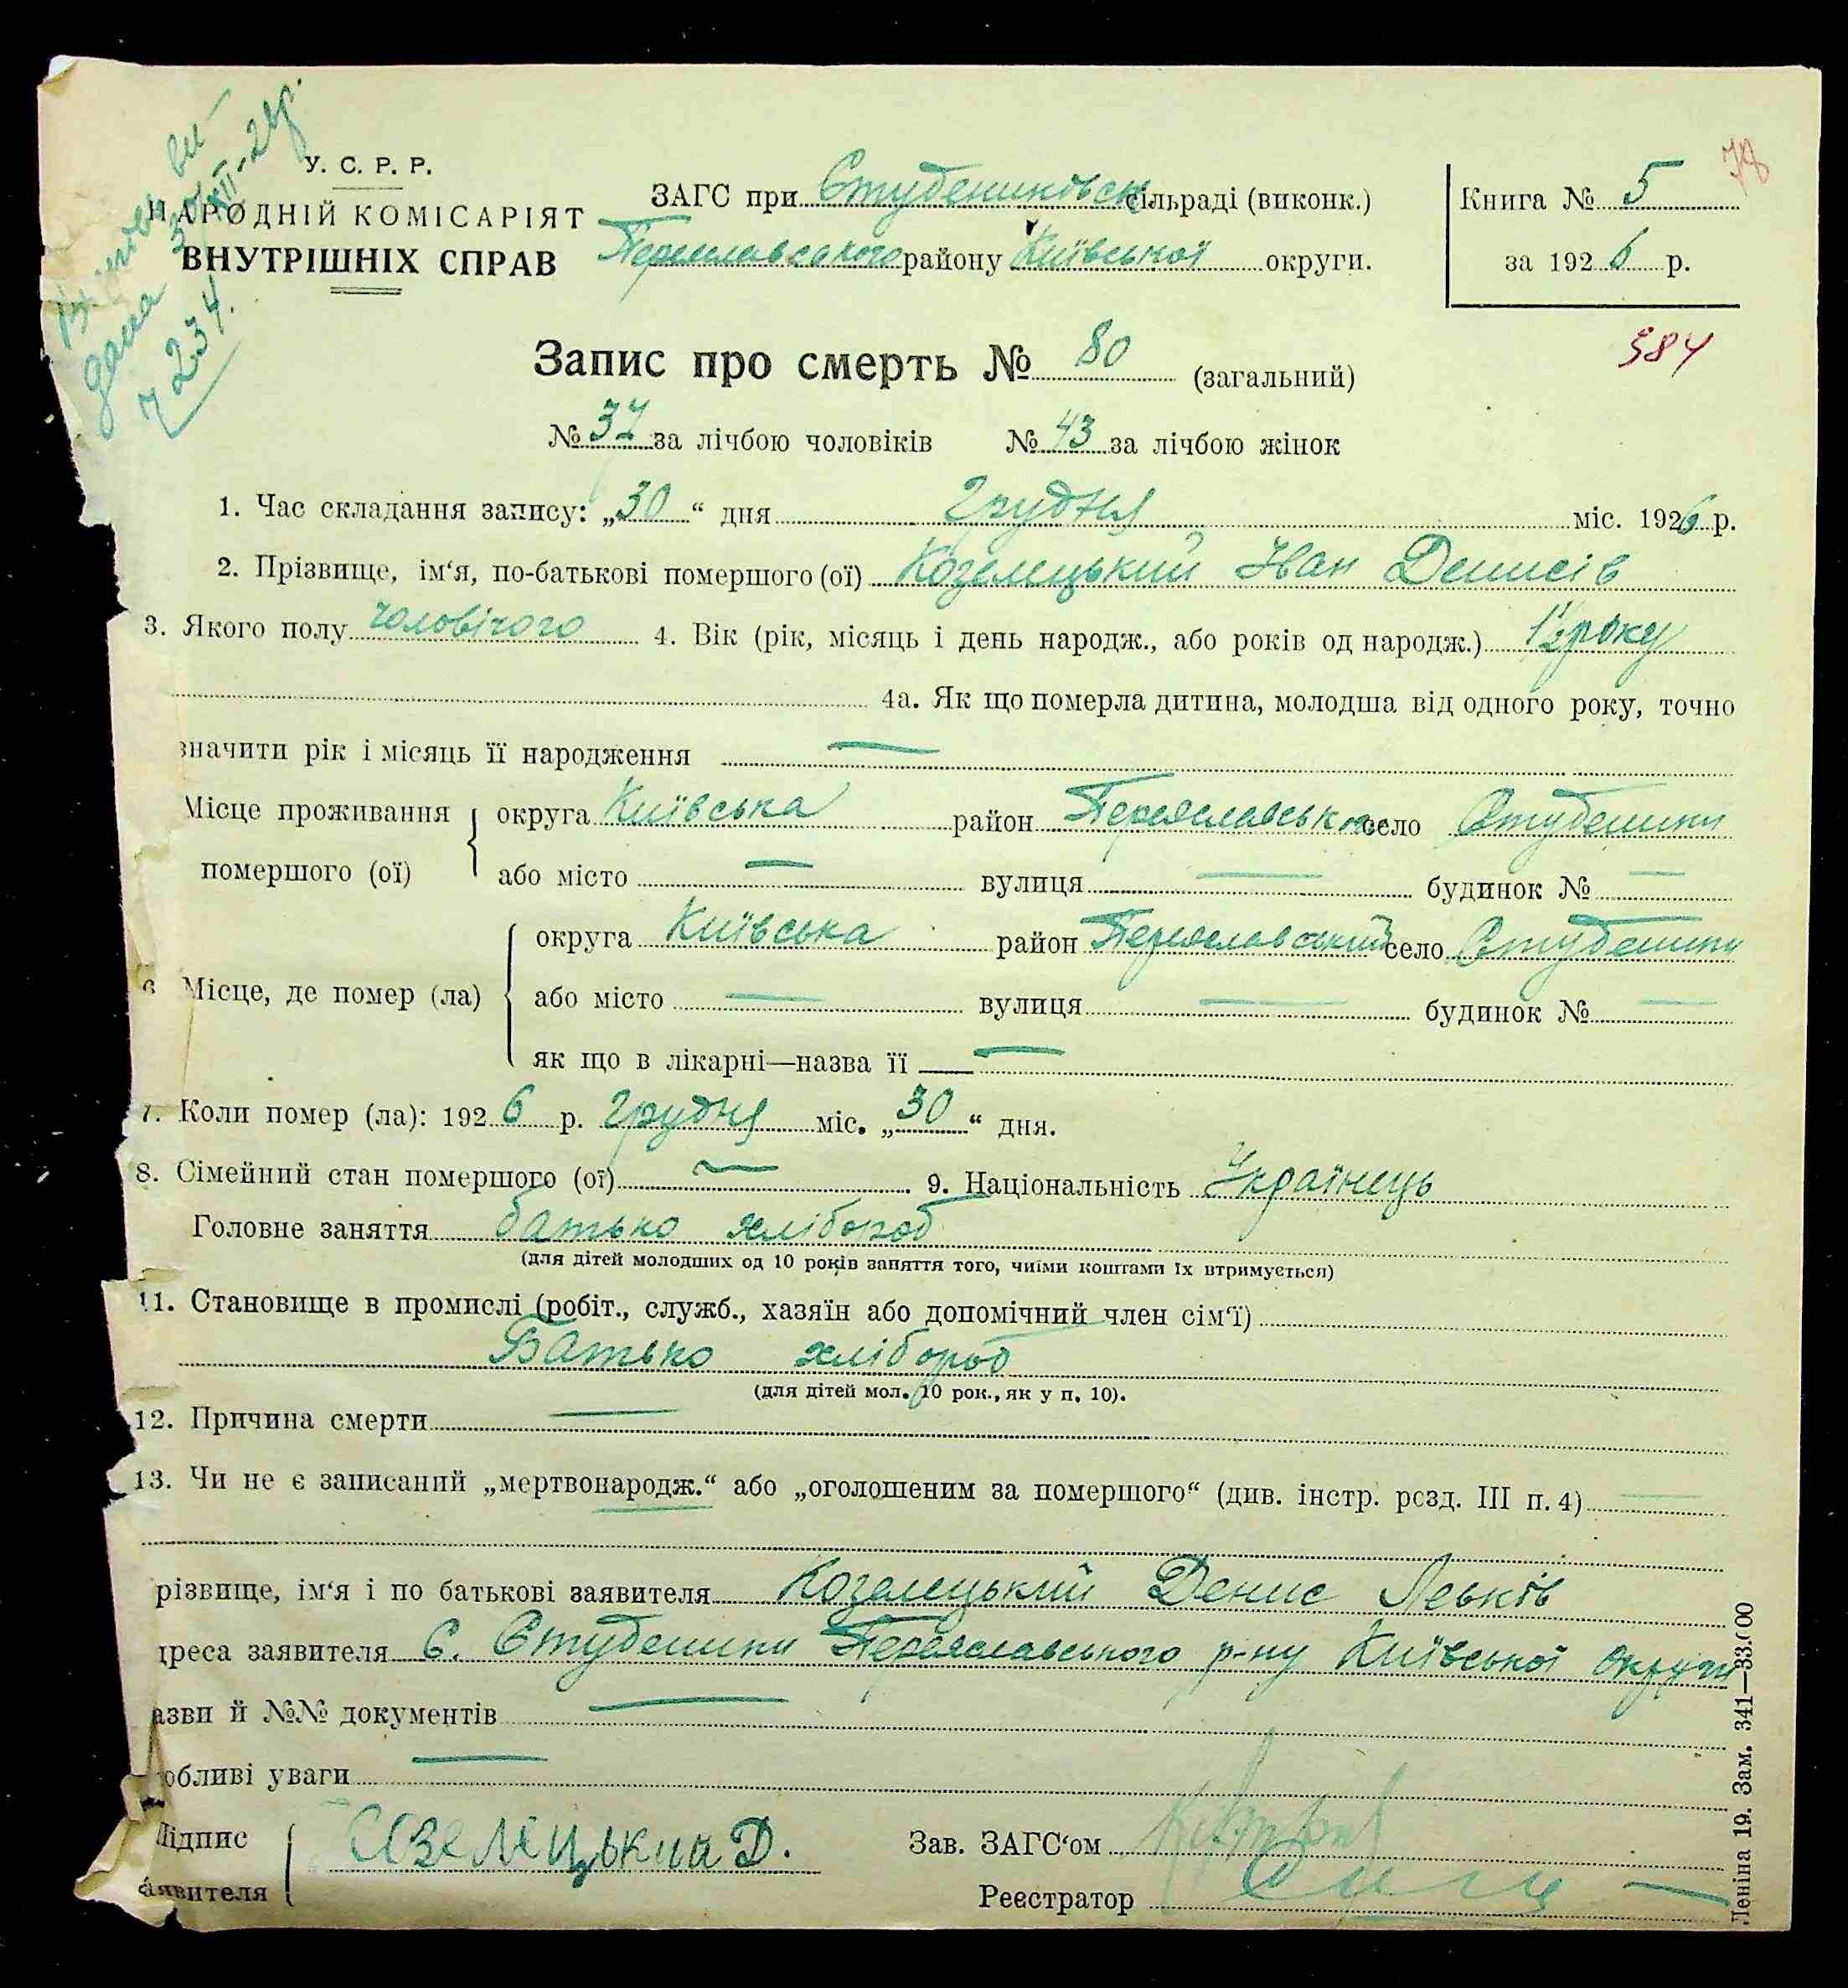 Виписка ви-
дана 30/XII-26р.
7234.
У. С. Р. Р.
НАРОДНІЙ КОМІСАРІЯТ
ВНУТРІШНІХ СПРАВ
ЗАГС при Студениківськ сільраді (виконк.)
Переяславського району Київської округи.
Книга № 5
за 1926 р.
78
584
Запис про смерть № 80 (загальний)
№ 37 за лічбою чоловіків № 43 за лічбою жінок
1. Час складання запису: „30“ дня Грудня міс. 1926 р.
2. Прізвище, ім‘я, по-батькові помершого (ої) Козелецький Іван Денисів
3. Якого полу чоловічого 4. Вік (рік, місяць і день народж., або років од народж.) 1½ року
4а. Як що померла дитина, молодша від одного року, точно
значити рік і місяць її народження —
Місце проживання помершого (ої)
округа Київська район Переяславськ село Студеники
або місто — вулиця — будинок № —
6 Місце, де помер (ла)
округа Київська район Переяславський село Студеники
або місто — вулиця — будинок № —
як що в лікарні—назва її —
7. Коли помер (ла): 1926 р. Грудня міс. „30“ дня.
8. Сімейний стан помершого (ої) — 9. Національність Українець
Головне заняття батько хлібороб
(для дітей молодших од 10 років заняття того, чиїми коштами їх втримується)
11. Становище в промислі (робіт., служб., хазяїн або допомічний член сім‘ї)
Батько хлібороб
(для дітей мол. 10 рок., як у п. 10).
12. Причина смерти —
13. Чи не є записаний „мертвонародж.“ або „оголошеним за помершого“ (див. інстр. розд. III п. 4) —
різвище, ім‘я і по батькові заявителя Козелецький Денис Леьків
дреса заявителя С. Студеники Переяславського р-ну Київської округи
азви й №№ документів —
обливі уваги —
Підпис
заявителя
Козелецький Д.
Зав. ЗАГС‘ом
Реєстратор
Леніна 19. Зам. 341—33.000